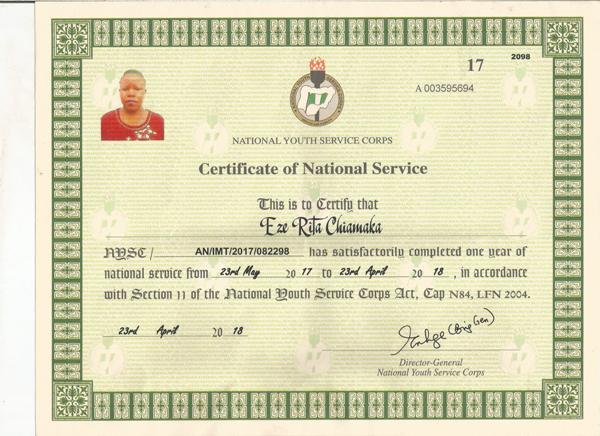 17
2098
A 003595694
NATIONAL YOUTH SERVICE CORPS
Certificate of National Service
This is to Certify that
Eze Rita Chiamaka
NYSC / AN/IMT/2017/082298 has satisfactorily completed one year of
national service from 23rd May 20 17 to 23rd April 20 18 , in accordance
with Section 11 of the National Youth Service Corps Act, Cap N84, LFN 2004.
23rd April 20 18
(Brig Gen)
Director-General
National Youth Service Corps